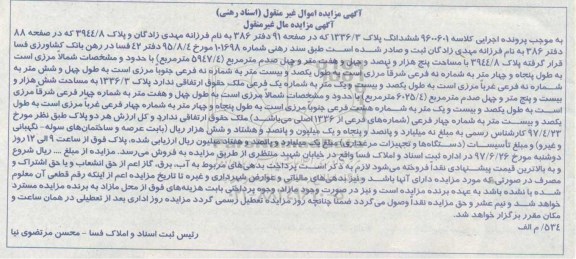 آگهی مزایده اموال غیر منقول (اسناد رهنی)
آگهی مزایده مال غیرمنقول
به موجب پرونده اجرایی کلاسه ۹۶۰۰۶۰۱ ششدانگ پلاک ۱۳۳۶/۳ که در صفحه ۹۱ دفتر ۳۸۶ به نام فرزانه مهدی زادگان و پلاک ۳۹۴۴/۸ که در صفحه ۸۸
دفتر ۳۸۶ به نام فرزانه مهدی زادگان ثبت و صادر شده است طبق سند رهنی شماره ۱۰۱۶۹۸ مورخ ۹۵/۸/۴ دفتر ۴۲ فسا در رهن بانک کشاورزی فسا
قرار گرفته پلاک ۳۹۴۴/۸ با مساحت پنج هزار و نهصد و چهل و هفت متر و چهل صدم مترمربع (۵۹۴۷/۴ مترمربع) با حدود و مشخصات شمالاً مرزی است
به طول پنجاه و چهار متر به شماره نه فرعی شرقاً مرزی است به طول یکصد و بیست متر به شماره نه فرعی جنوباً مرزی است به طول چهل و شش متر به
شماره نه فرعی غرباً مرزی است به طول یکصد و بیست و یک متر به شماره یک فرعی ملک حقوق ارتفاقی ندارد پلاک ۱۳۳۶/۳ به مساحت شش هزار و
بیست و پنج متر و چهل صدم مترمربع (۶۰۲۵/۴ مترمربع) با حدود و مشخصات شمالاً مرزی است به طول چهل و هفت متر به شماره چهار فرعی شرقاً مرزی
است به طول یکصد و بیست و یک متر به شماره هشت فرعی جنوباً مرزی است به طول پنجاه و چهار متر به شماره چهار فرعی غرباً مرزی است به طول
یکصد و بیست متر به شماره چهار فرعی (شماره‌های فرعی از ۱۳۳۶ اصلی می‌باشند) ملک حقوق ارتفاقی ندارد و کل ارزش هر دو پلاک طبق نظر مورخ
۹۷/۴/۲۳ کارشناس رسمی به مبلغ نه میلیارد و پانصد و پنجاه و یک میلیون و پانصد و هشتاد و شش هزار ریال (بابت عرصه و ساختمان‌های سوله- نگهبانی
و غیره) و مبلغ تأسیسات (دستگاه‌ها و تجهیزات مرغداری) مبلغ یک میلیارد و پانصد و میلیون ریال ارزیابی شده، پلاک فوق از ساعت ۹ الی ۱۲ روز
دوشنبه مورخ ۹۷/۶/۲۶ در اداره ثبت اسناد و املاک فسا واقع در خیابان شهید منتظری از طریق مزایده به فروش می‌رسد. مزایده از مبلغ ... ریال شروع
و به بالاترین قیمت پیشنهادی نقداً فروخته می‌شود لازم به ذکر است پرداخت بدهی‌های مربوط به آب، برق، گاز اعم از حق انشعاب و یا حق اشتراک و
مصرف در صورتی که مورد مزایده دارای آنها باشد و نیز بدهی‌های مالیاتی و عوارض شهرداری و غیره تا تاریخ مزایده اعم از اینکه رقم قطعی آن معلوم
شده یا نشده باشد به عهده برنده مزایده است و نیز در صورت وجود مازاد، وجوه پرداختی بابت هزینه‌های فوق از محل مازاد به برنده مزایده مسترد
خواهد شد و نیم عشر و حق مزایده نقداً وصول می‌گردد ضمناً چنانچه روز مزایده تعطیل رسمی گردد مزایده روز اداری بعد از تعطیلی در همان ساعت و
مکان مقرر برگزار خواهد شد.
۵۳۴/ م الف
رئیس ثبت اسناد و املاک فسا - محسن مرتضوی نیا